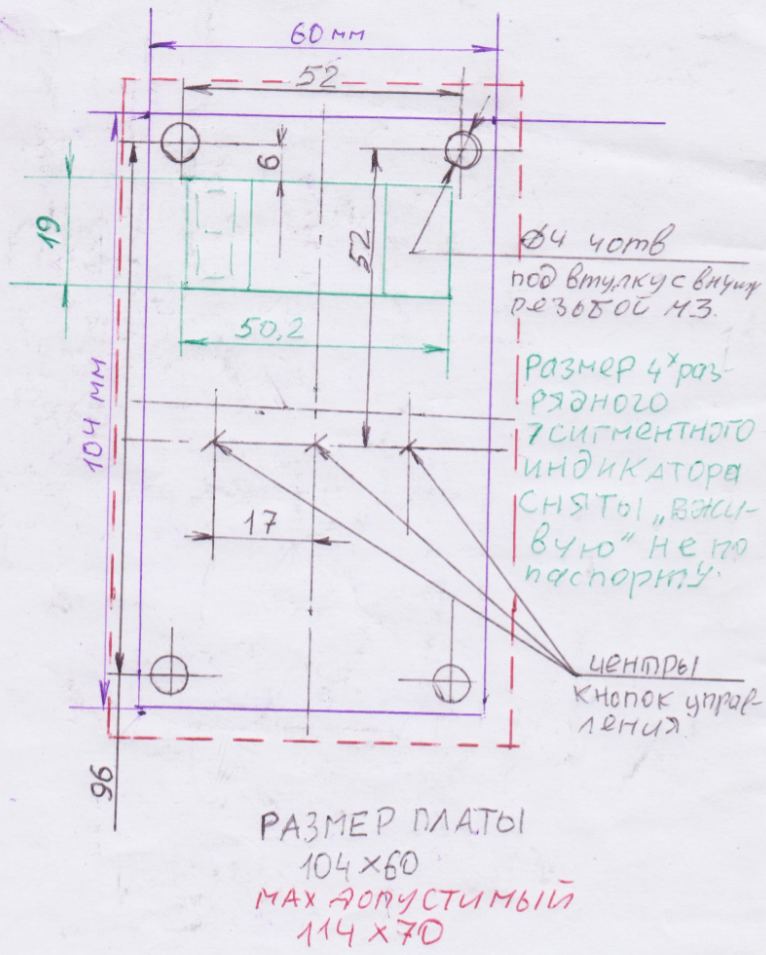 60 мм
52
6
19
52
ø4 4отв
под втулку с внутр
резьбой М3.
50,2
Размер 4х раз-
рядного
7сигментного
индикатора
сняты „вжи-
вую" не по
паспорту.
104 мм
17
центры
кнопок управ-
ления.
96
РАЗМЕР ПЛАТЫ
104 х 60
МАХ ДОПУСТИМЫЙ
114 х 70